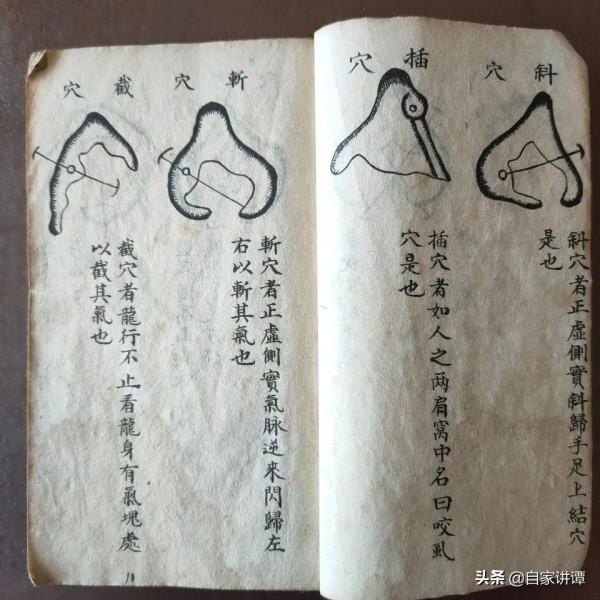 斜穴
斜穴者正虛側實斜歸手足上結穴
是也
插穴
插穴者如人之两肩窩中名曰咬虱
穴是也
斬穴
斬穴者正虛側實氣脉逆來閃歸左
右以斬其氣也
截穴
截穴者龍行不止看龍身有氣塊處
以截其氣也
头条 @自家讲谭